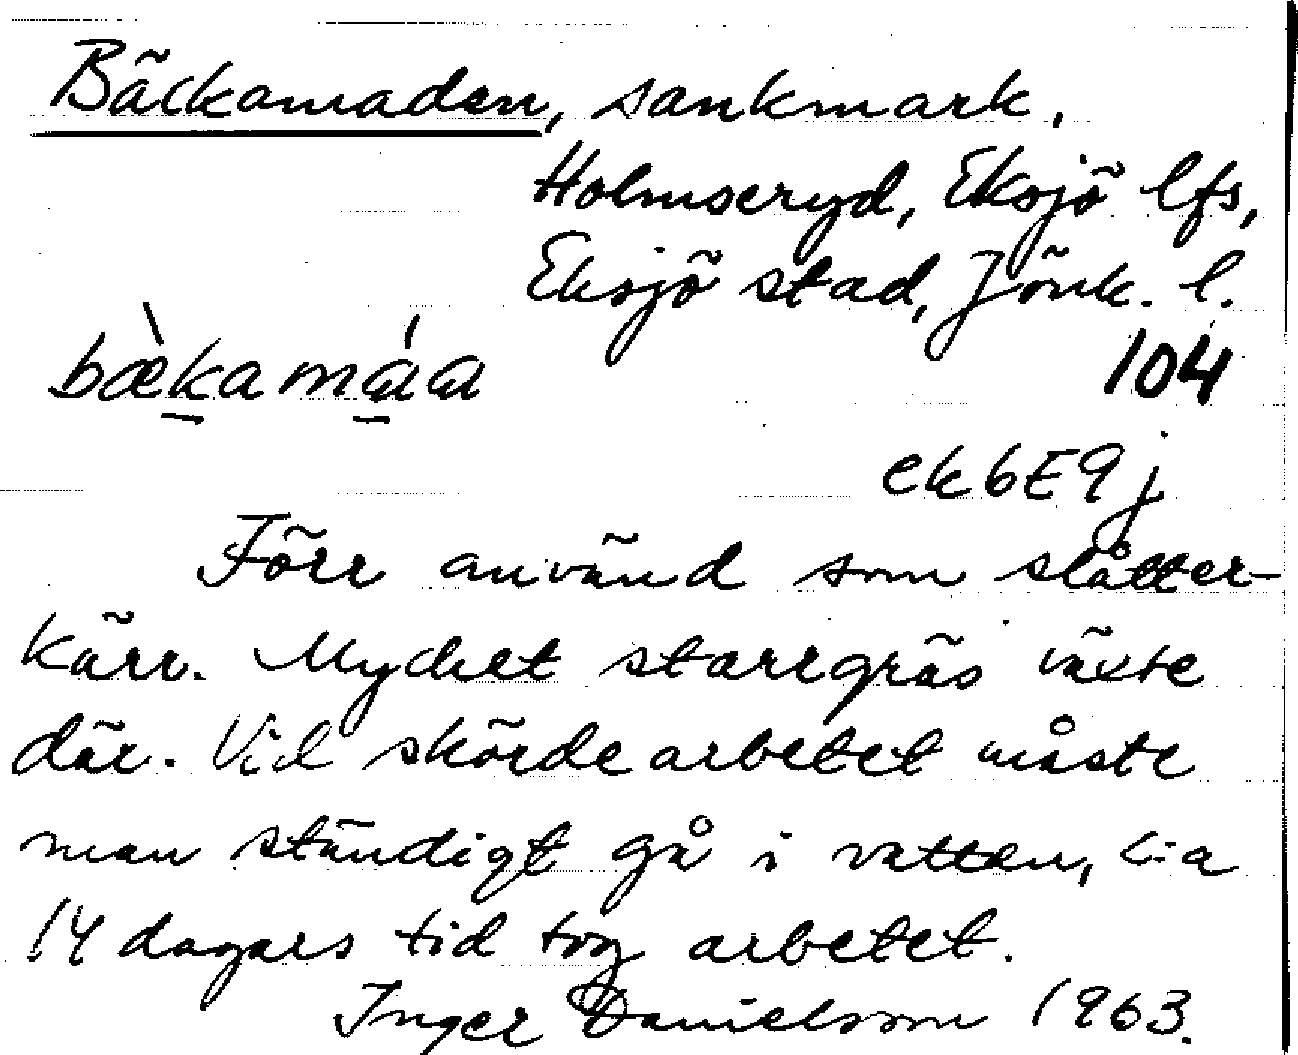 Bäckamaden, sankmark.
Holmseryd, Eksjö lfs,
Eksjö stad, Jönk. l.
bæ̀kamáa
104
ek6E9j
Förr använd som slåtter-
kärr. Mycket starrgräs växte
där. Vid skördearbetet måste
man ständigt gå i vatten, c:a
14 dagars tid tog arbetet.
Inger Danielsson 1963.